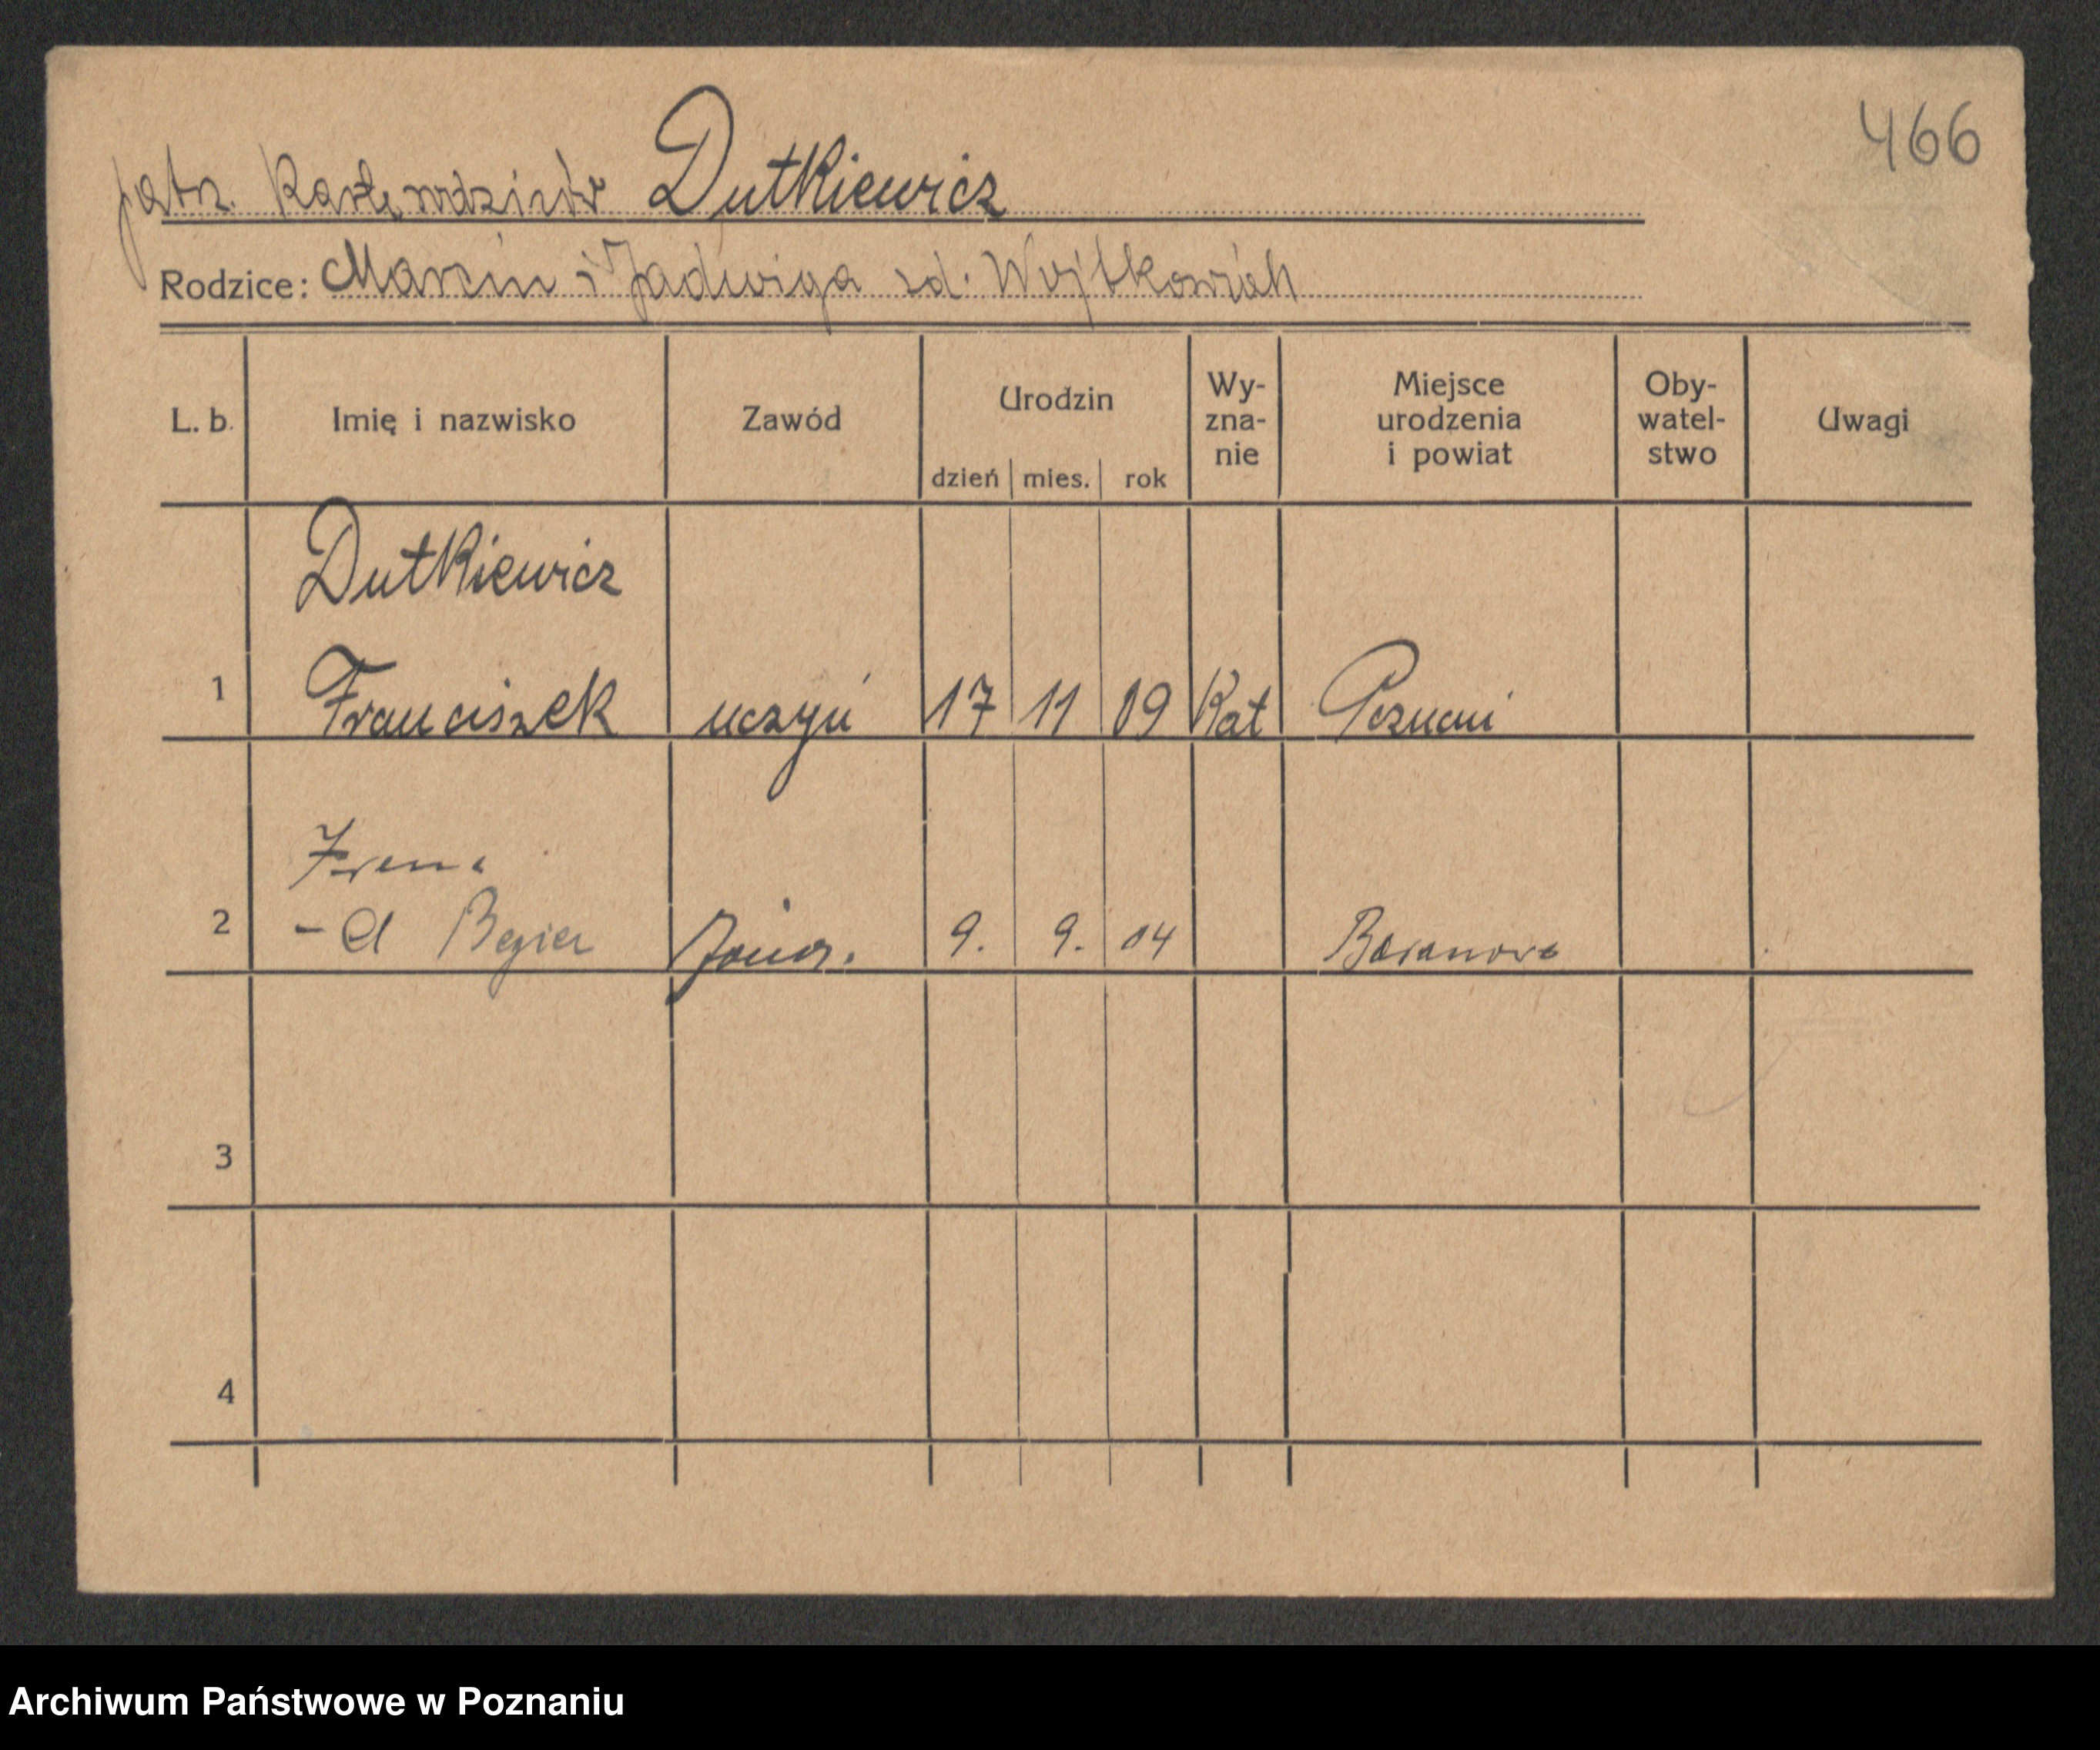 466
patrz Kartę rodziców Dutkiewicz
Rodzice: Marcin i Jadwiga zd. Wojtkowiak
L. b. Imię i nazwisko Zawód Urodzin dzień mies. rok Wy-zna-nie Miejsce urodzenia i powiat Oby-watel-stwo Uwagi
Dutkiewicz
1 Franciszek uczyń 17 11 09 Kat Poznań
Irena
2 - d Begier 9. 9. 04 Baranowo
3
4
Archiwum Państwowe w Poznaniu